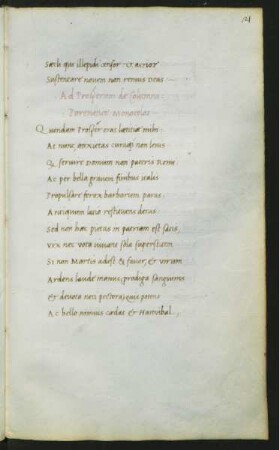 121
Sæcli qui illepidi censor & acriter
Sustentare nouem non renuis Deas
Ad Prosperum de Columna
Quondam Prosper eras lætitiæ mihi
At nunc anxietas curaque non leuis
feruire Domum non pateris Remi
Ac per bella grauem finibus italis
Propulsare ferox barbariem paras
Antiquum latio restituens decus
Sed non hæc pietas in patriam est satis
Vix nec vota iuuant sola superstitem
Si non Martis adest & furor, et virum
Ardens laude manus, prodiga sanguinis
et deuota neci pectora
Ac bello nimius cædas et Hannibal.